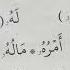 لَهُ . (
أَمْرُهُ * مَالُهُ